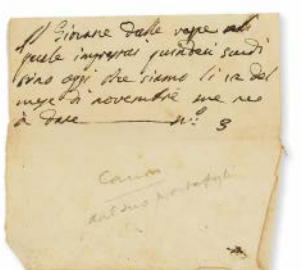 Giovane dalle vope al
quale imprestai quindeci scudi
sino ogi che siamo li 12 del
mese di novembre me ne
à dare n.º 3
Antonio